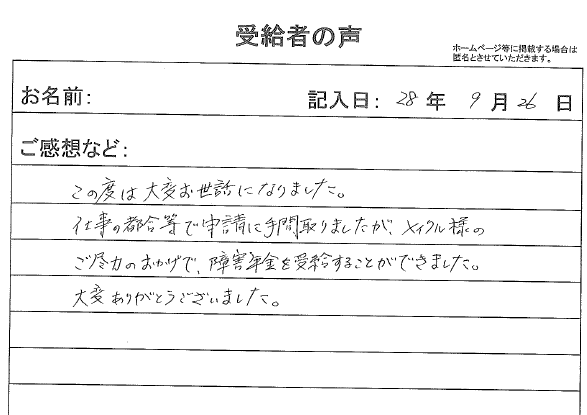 受給者の声
ホームページ等に掲載する場合は
匿名とさせていただきます。
お名前: 記入日: 28 年 9 月 26 日
ご感想など:
この度は大変お世話になりました。
仕事の都合等で申請に手間取りましたが、メイクル様の
ご尽力のおかげで、障害年金を受給することができました。
大変ありがとうございました。